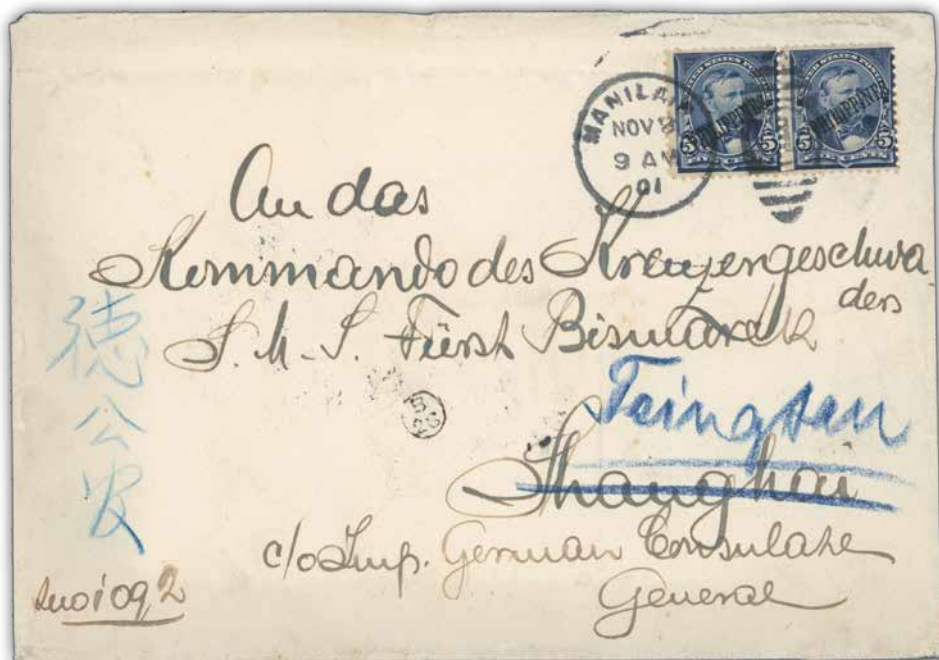 MANILA
NOV
9 AM
01
PHILIPPINES
PHILIPPINES
5 5
5 5
An das
Kommando des Kreuzergeschwa
ders
S. M. S. Fürst Bismarck
Tsingtau
Shanghai
c/o Imp. German Consulate
General
德
公